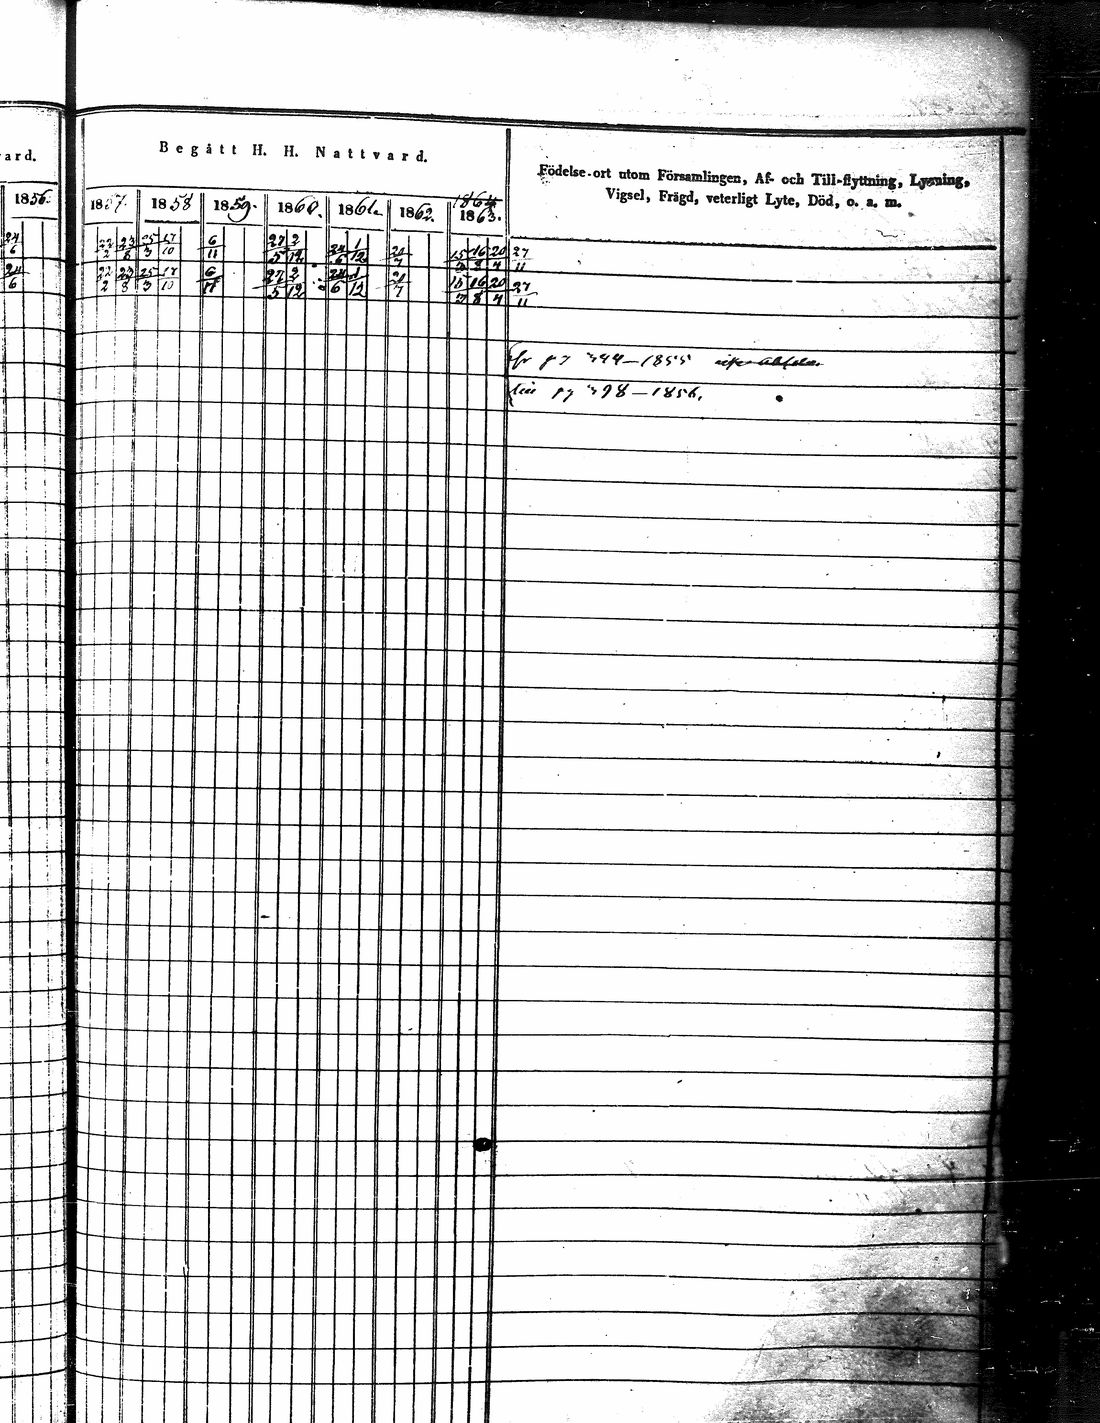 ard.
Begått H. H. Nattvard.
Födelse-ort utom Församlingen, Af- och Till-flyttning, Lysning,
Vigsel, Frägd, veterligt Lyte, Död, o. a. m.
1864
1856. 1857. 1858 1859. 1860. 1861. 1862. 1863.
24/6 22/2 23/8 25/3 17/10 6/11 27/5 2/12 24/6 1/12 20/7 15/3 16/8 20/4 27/11
24/6 22/2 23/8 25/3 17/10 6/11 27/5 2/12 24/6 1/12 20/7 15/3 16/8 20/4 27/11
fr pg 344—1855
pg 398—1856.